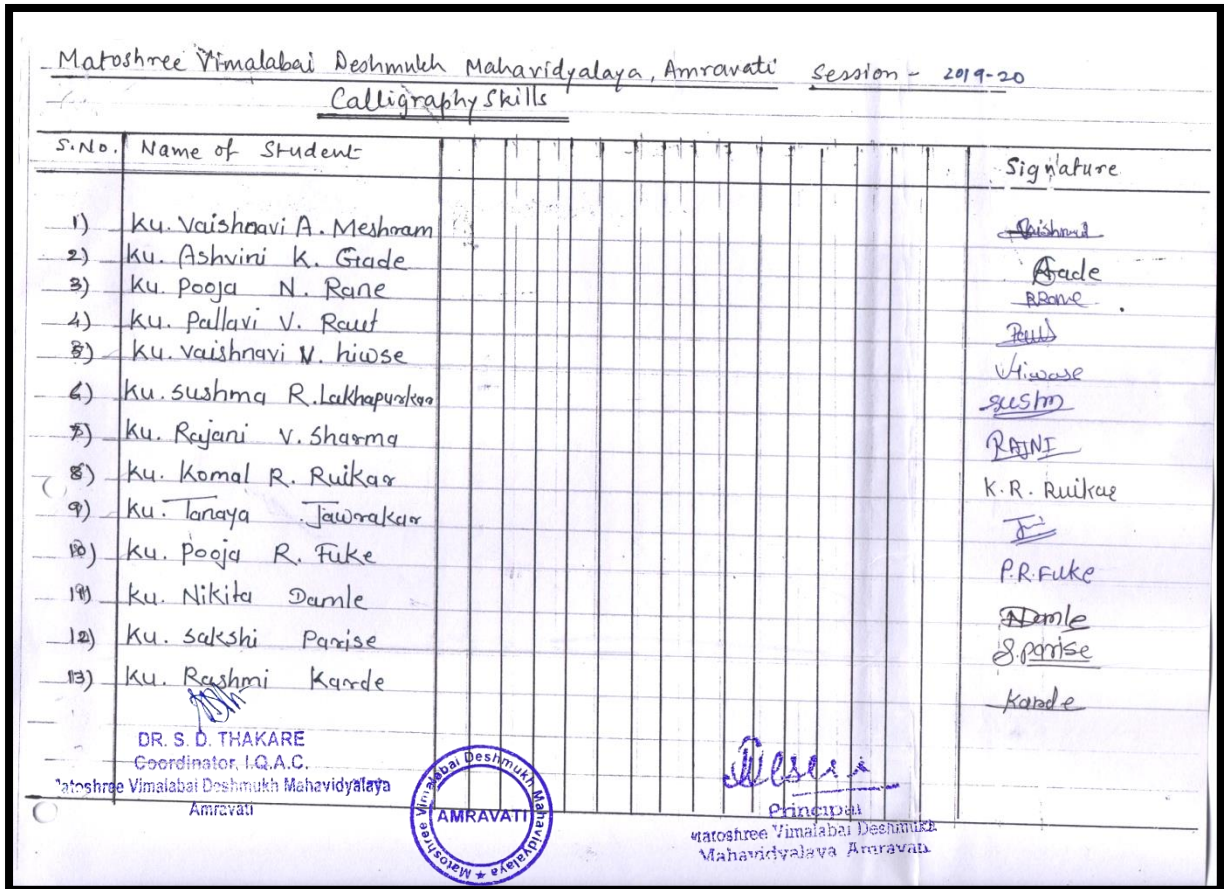 Matoshree Vimalabai Deshmukh Mahavidyalaya, Amravati Session - 2019-20
Calligraphy Skills
S.No. Name of Student Signature
1) Ku. Vaishnavi A. Meshram Vaishnavi
2) Ku. Ashvini K. Gade AGade
3) Ku. Pooja N. Rane PRane
4) Ku. Pallavi V. Raut
5) Ku. Vaishnavi V. hiwse VHiwase
6) Ku. Sushma R. Lakhapurkar sushm
7) Ku. Rajani V. Sharma RAJNI
8) Ku. Komal R. Ruikar K.R. Ruikar
9) Ku. Tanaya Jawrakar
10) Ku. Pooja R. Fuke P.R.Fuke
11) Ku. Nikita Damle NDamle
12) Ku. Sakshi Parise S.Parise
13) Ku. Rashmi Karde Karde
DR. S. D. THAKARE
Coordinator, I.Q.A.C.
Matoshree Vimalabai Deshmukh Mahavidyalaya
Amravati
Matoshree Vimalabai Deshmukh Mahavidyalaya
AMRAVATI
Principal
Matoshree Vimalabai Deshmukh
Mahavidyalaya Amravati